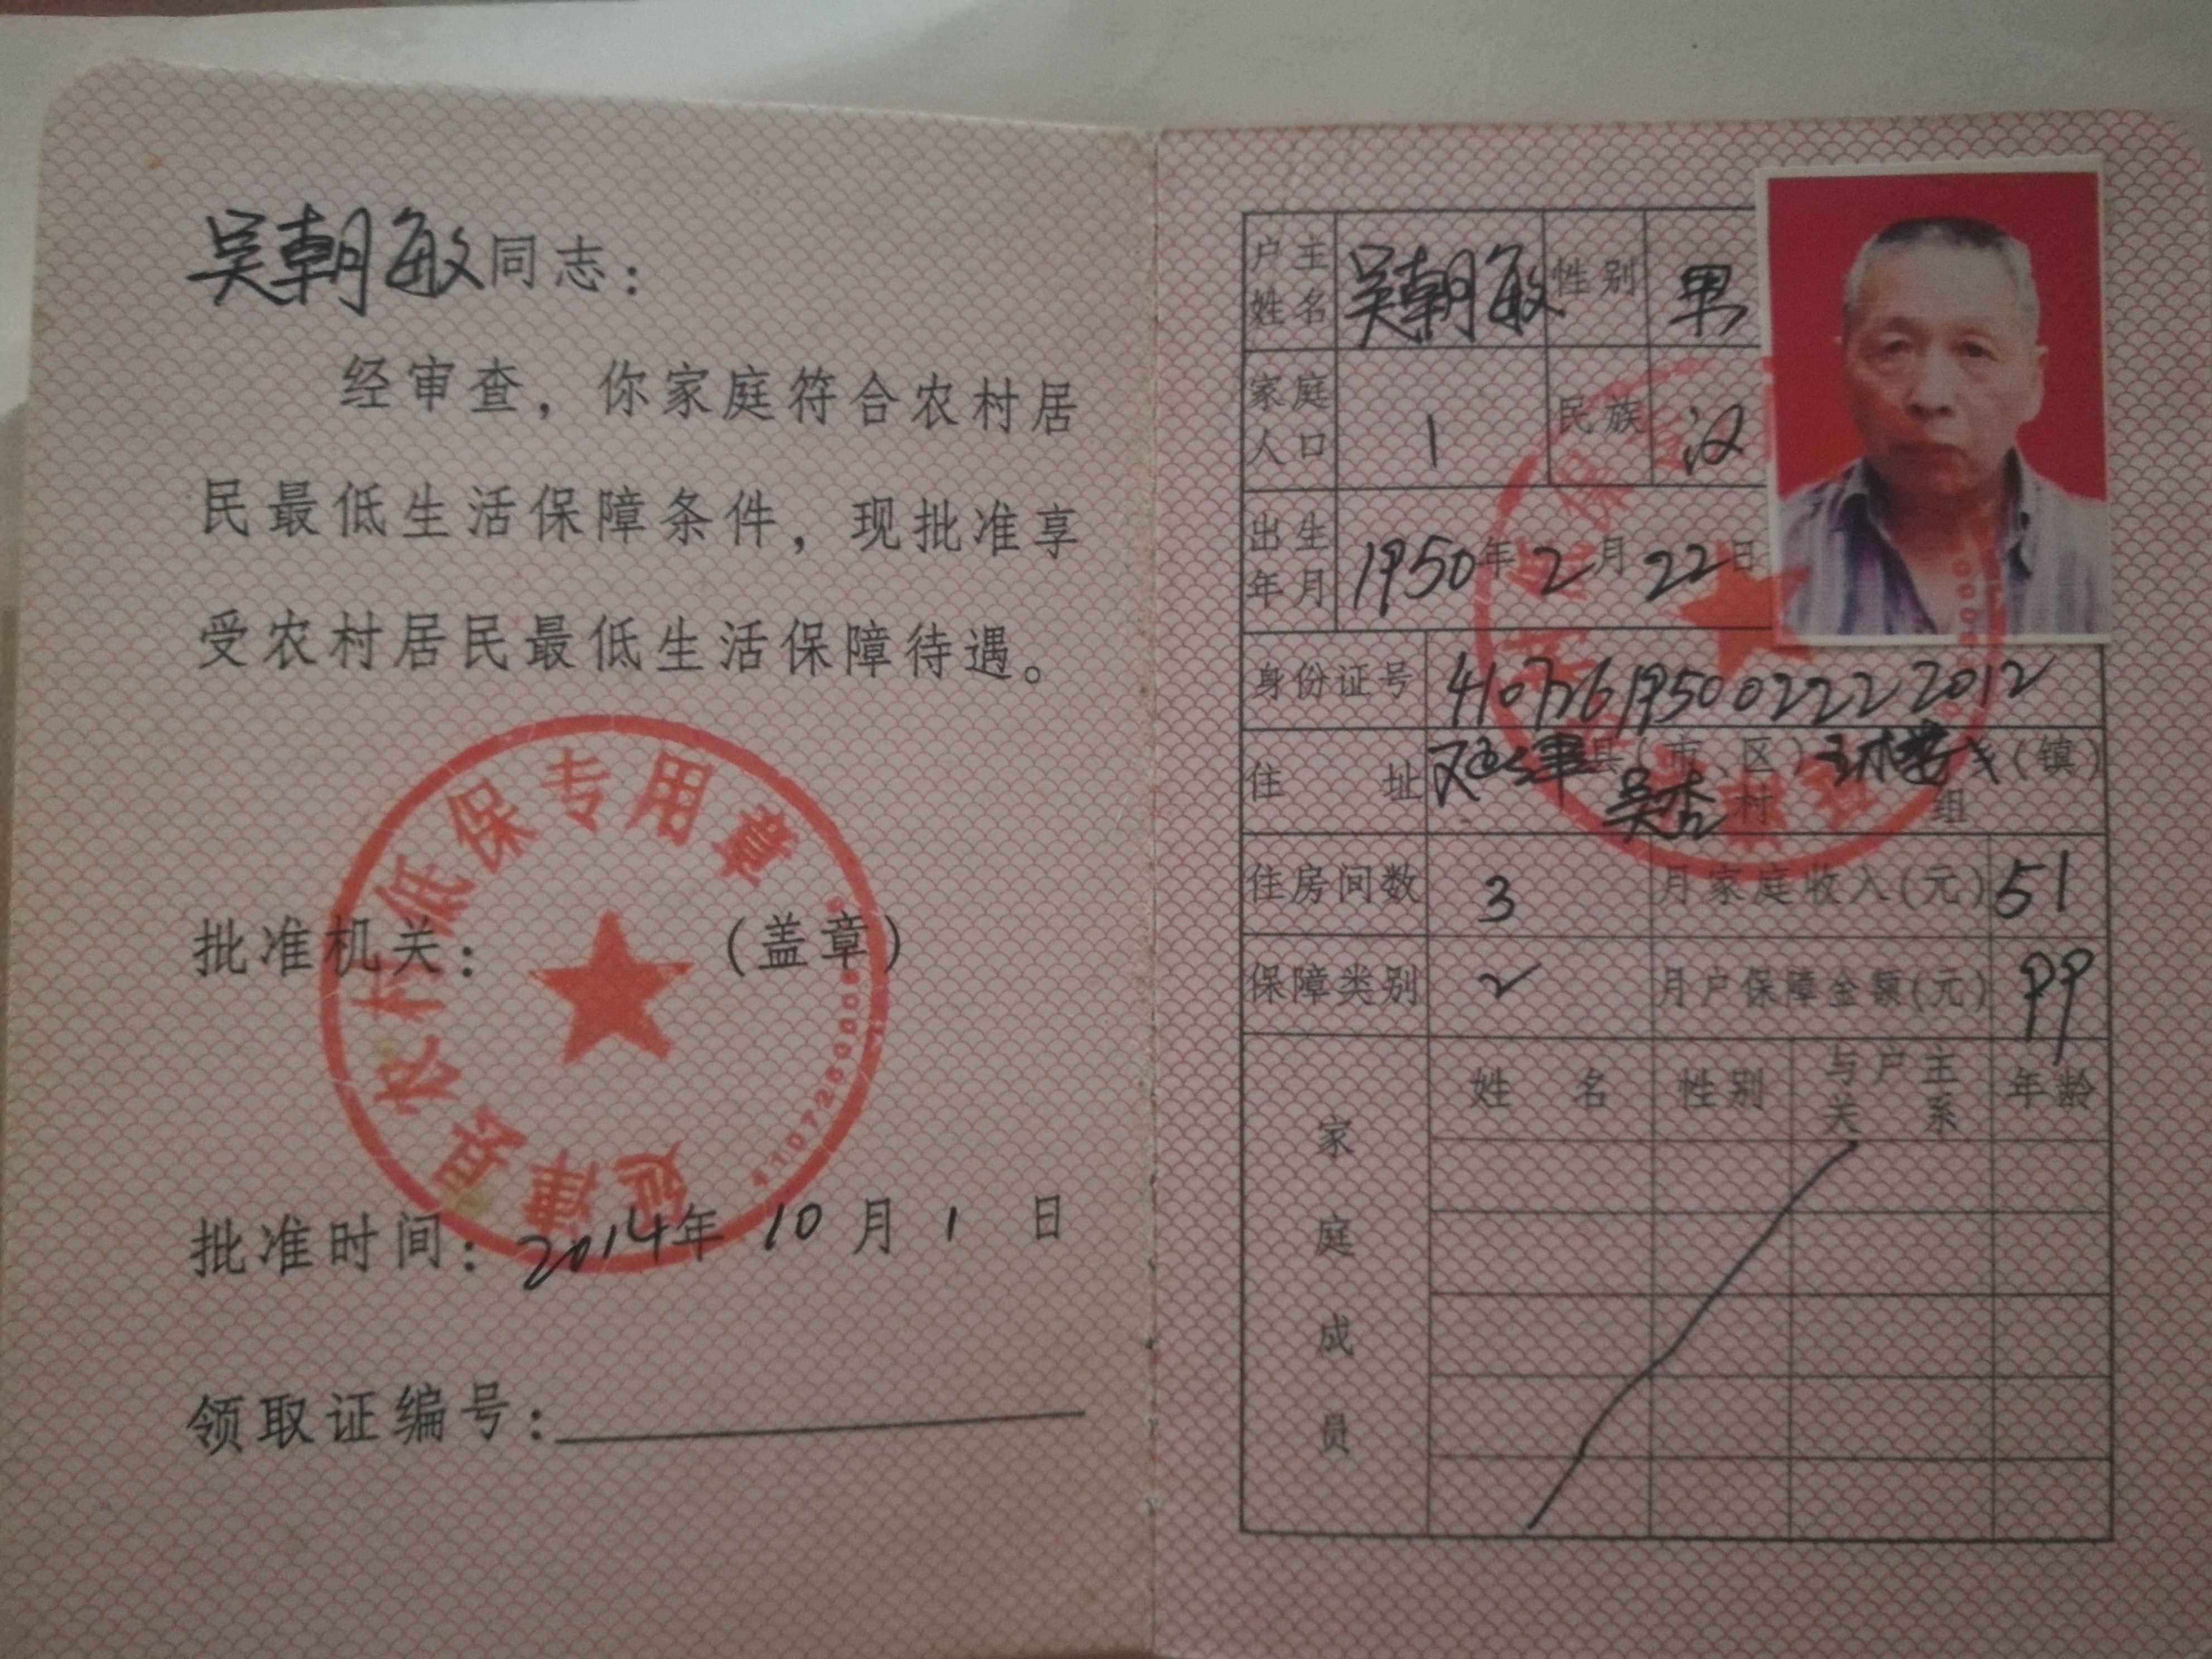 吴朝敏同志：
经审查，你家庭符合农村居
民最低生活保障条件，现批准享
受农村居民最低生活保障待遇。
批准机关：（盖章）
延津县农村低保专用章
批准时间：2014年 10 月 1 日
领取证编号：
户主姓名 吴朝敏 性别 男
家庭人口 1 民族 汉
出生年月 1950年2月22日
身份证号 410726195002222012
住址 延津县（市、区）（镇）
吴杏村 组
住房间数 3 月家庭收入(元) 51
保障类别 2 月户保障金额(元) 99
家庭成员 姓名 性别 与户主关系 年龄